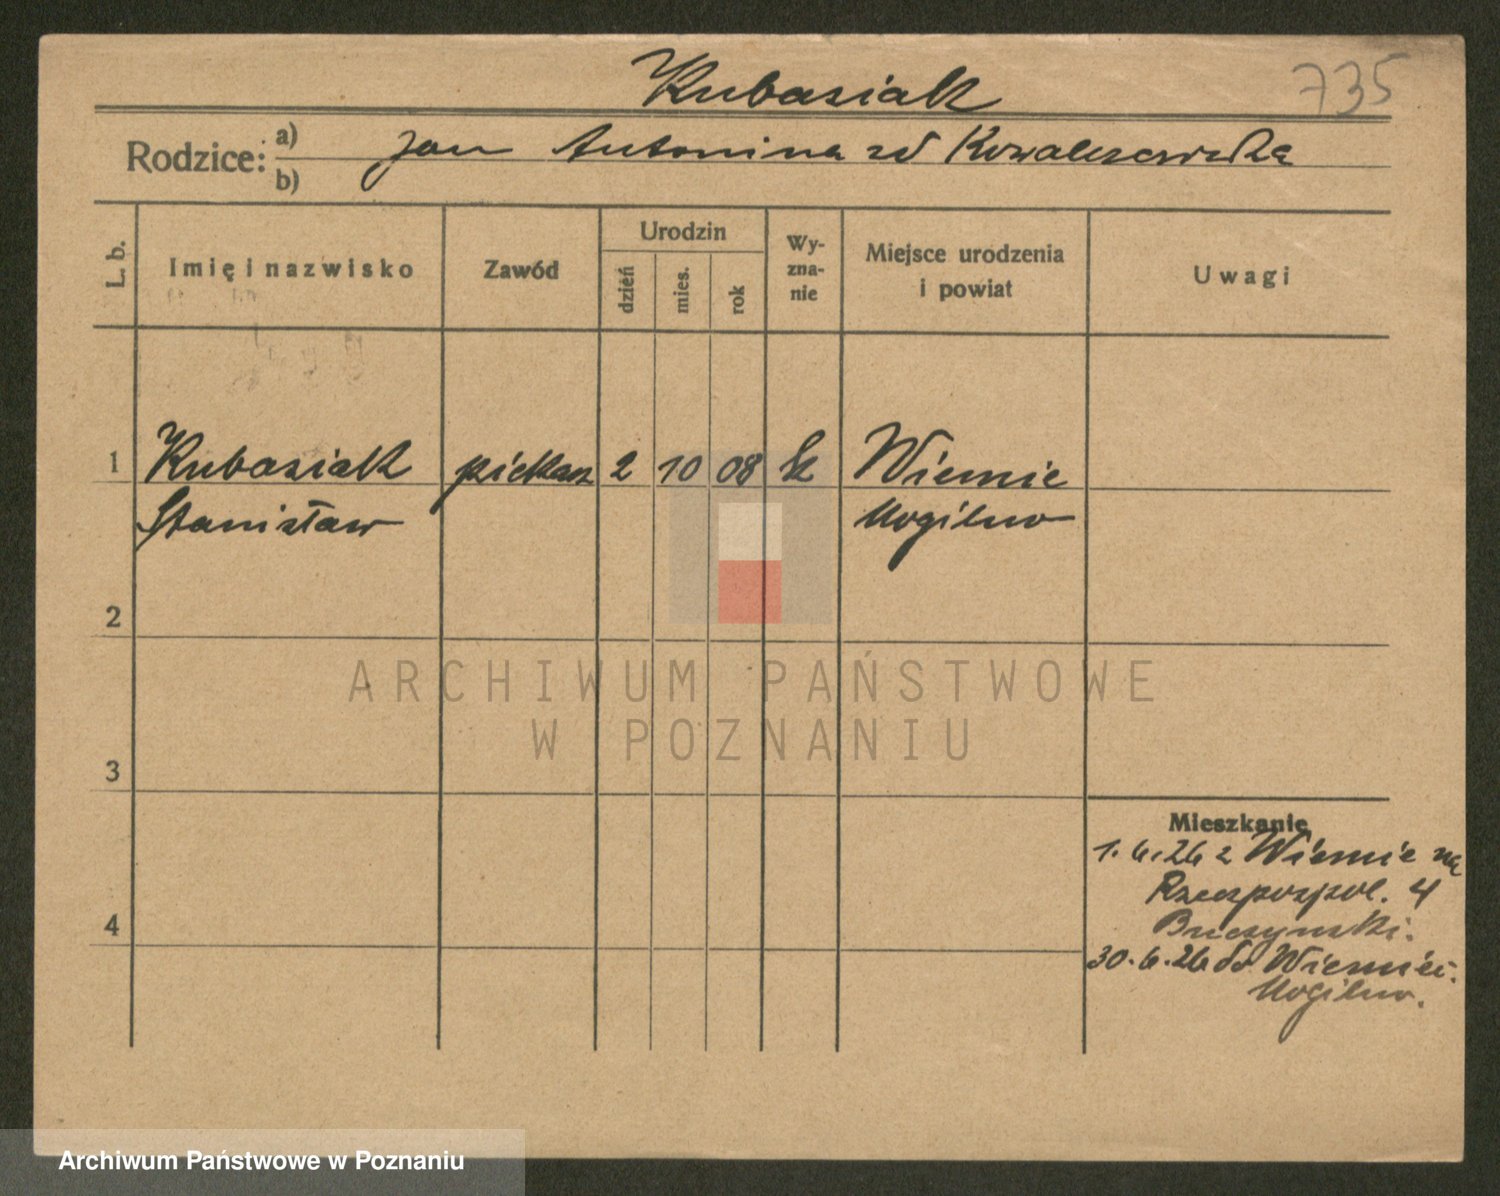 Kubasiak
735
Rodzice: a) b)
Jan Antonina zd Kowalczewska
L. b.
Imię i nazwisko
Zawód
Urodzin
dzień
mies.
rok
Wy-
zna-
nie
Miejsce urodzenia
i powiat
Uwagi
1 Kubasiak piekarz 2 10 08 k Wiemie
Stanisław Mogilno
2
3
4
Mieszkanie
1.6.26 z Wiemie na
Rzeczpospol. 4
Buczynski.
30.6.26 do Wiemiei.
Mogilno.
ARCHIWUM PAŃSTWOWE
W POZNANIU
Archiwum Państwowe w Poznaniu